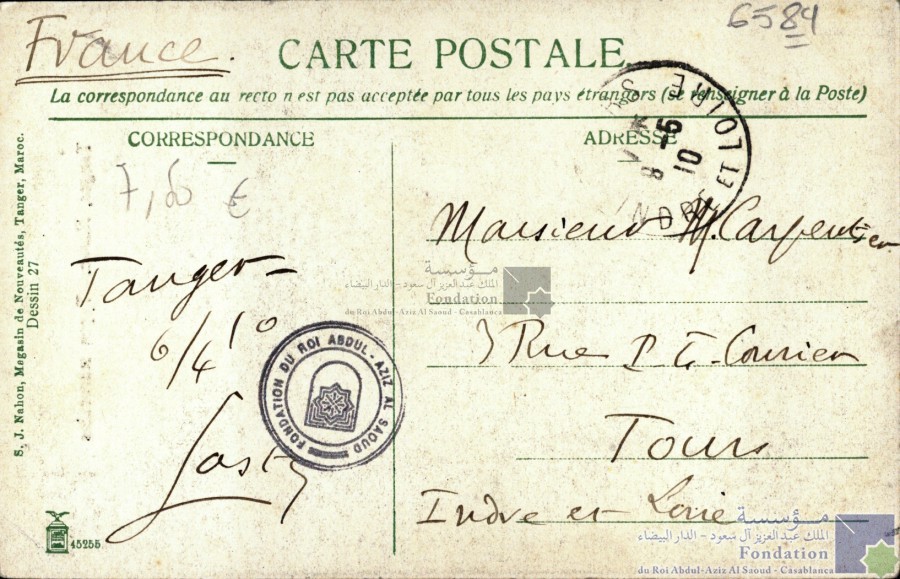 6584
France.
CARTE POSTALE
La correspondance au recto n est pas acceptée par tous les pays étrangers (se renseigner à la Poste)
CORRESPONDANCE
ADRESSE
INDRE ET LOIRE
8 -5
10
7,50 €
Monsieur M. Carpentier
Tanger
6/4 10
3 Rue P L Courier
Tours
Indre et Loire
S. J. Nahon, Megasin de Nouveautés, Tanger, Maroc.
Dessin 27
45255
FONDATION DU ROI ABDUL-AZIZ AL SAOUD
مؤسسة
الملك عبد العزيز آل سعود - الدار البيضاء
Fondation
du Roi Abdul-Aziz Al Saoud - Casablanca
مؤسسة
الملك عبد العزيز آل سعود - الدار البيضاء
Fondation
du Roi Abdul-Aziz Al Saoud - Casablanca